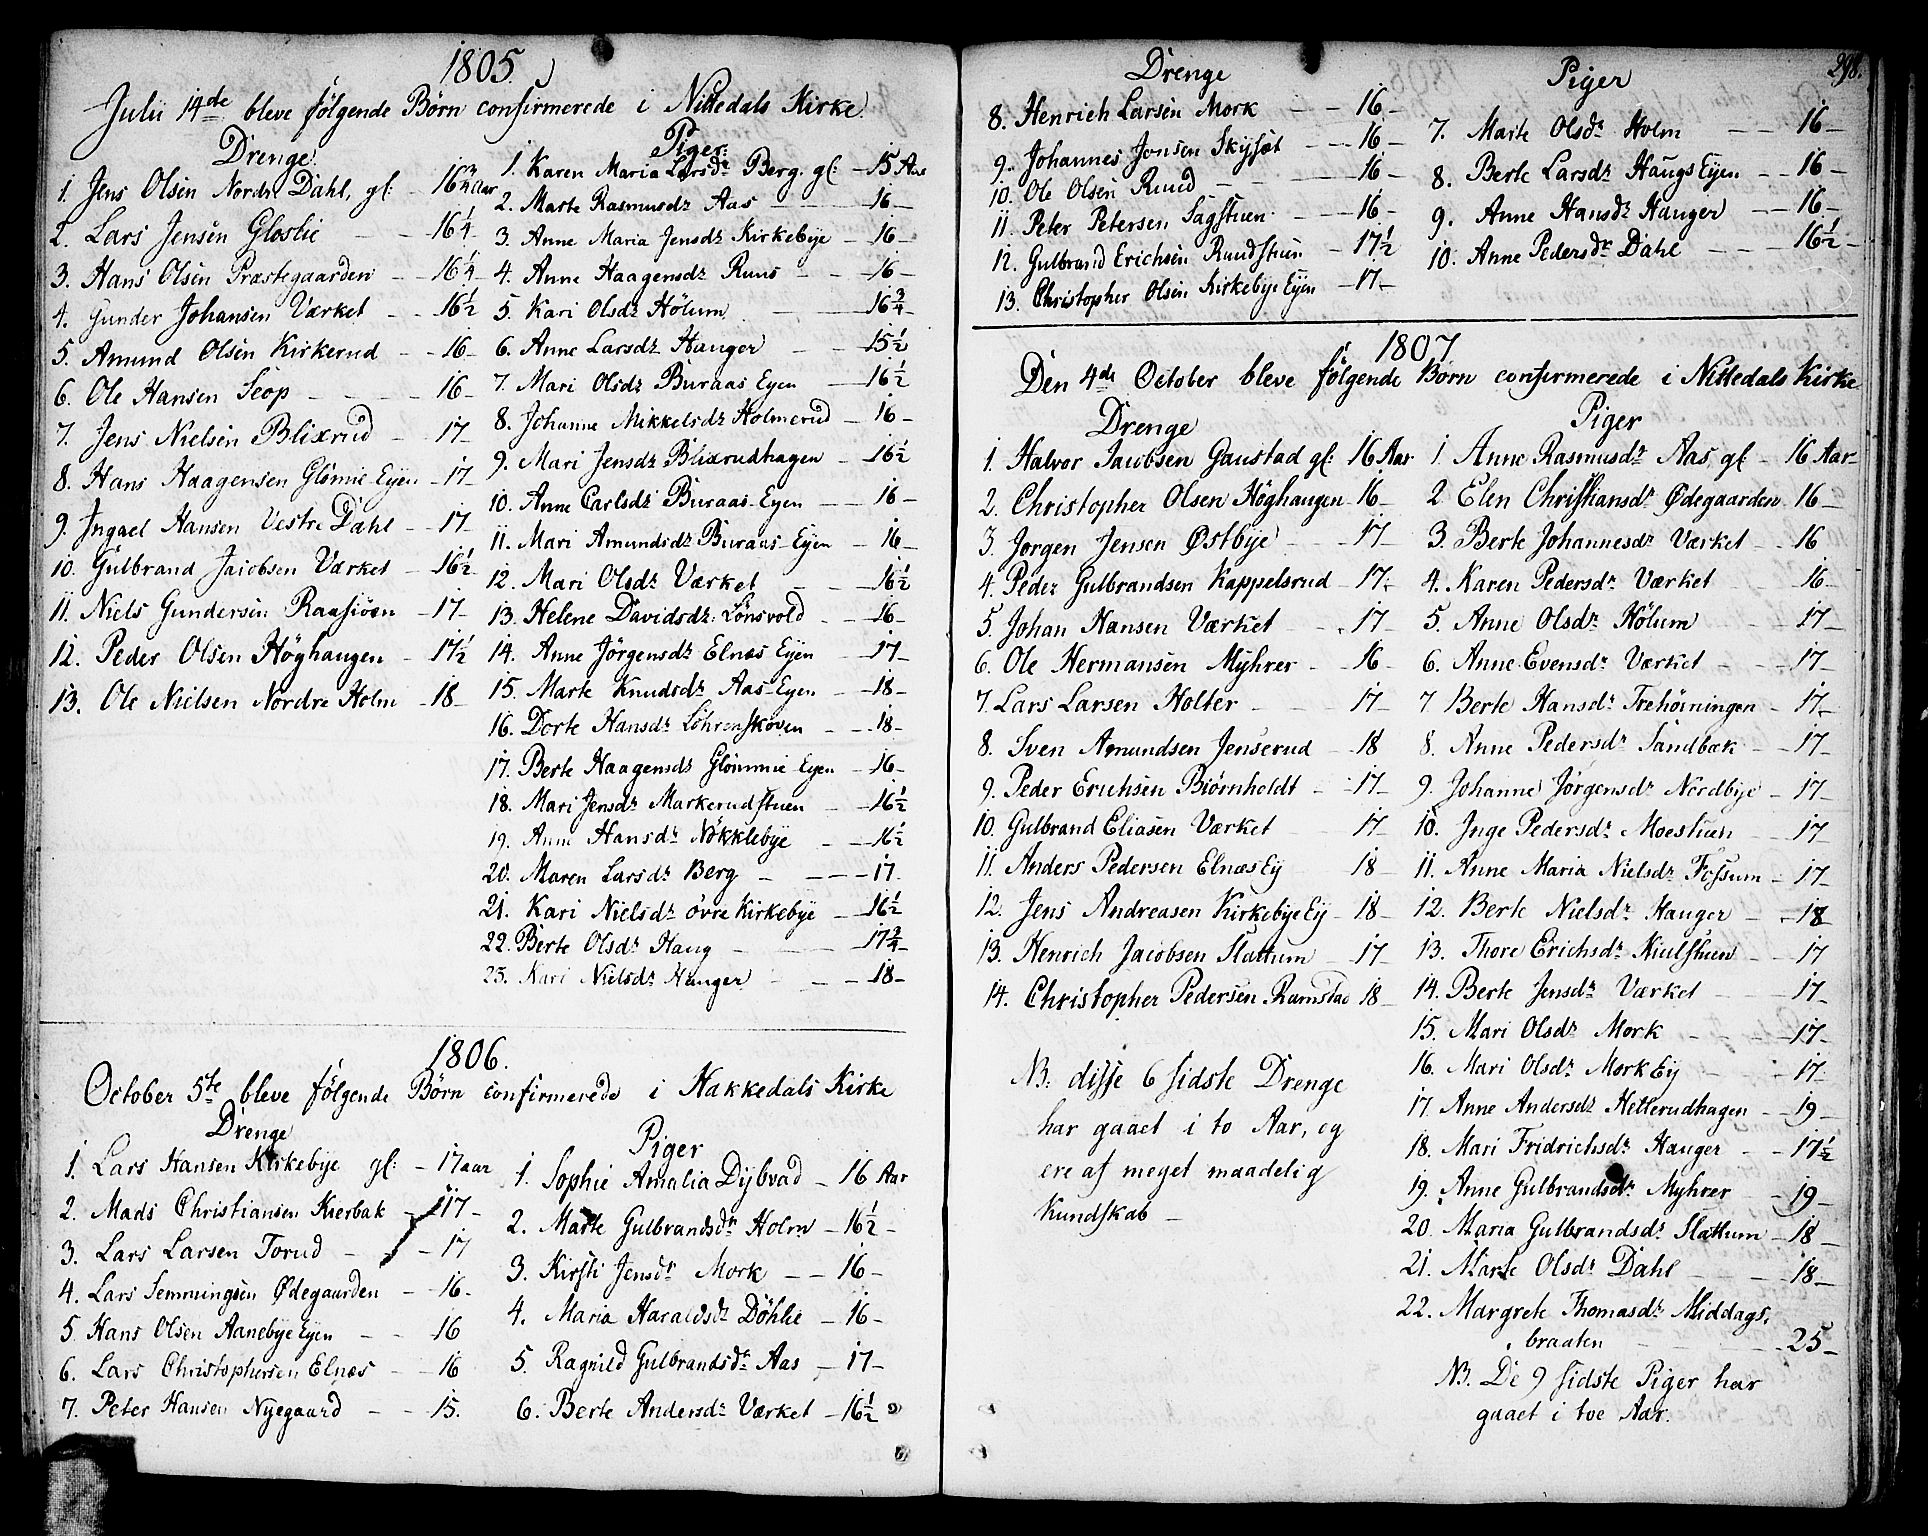 1805.
Julii 14de bleve følgende Børn confirmerede i Nittedals Kirke.
Drenge
1. Jens Olsen Nordre Dahl, gl: - 16 3/4 Aar
2. Lars Jensen Glostie - - 16 1/4 -
3. Hans Olsen Præstegaarden - 16 1/4 -
4. Gunder Johansen Værket - - 16 1/2
5. Amund Olsen Kirkerud - - 16 -
6. Ole Hansen Seop - - - 16 -
7. Jens Nielsen Blixrud - 17 -
8. Hans Haagensen Glömie-Eyen - 17 -
9. Ingael Hansen Vestre Dahl - 17 -
10. Gulbrand Jacobsen Værket - 16 1/2
11. Niels Gundersen Raasiöen - 17 -
12. Peder Olsen Höghaugen - 17 1/2
13. Ole Nielsen Nordre Holm - 18 -
Piger:
1. Karen Maria Larsdr Berg. gl: - 15 Aar
2. Marte Rasmusdr Aas - - 16 -
3. Anne Maria Jensdr Kirkebye - 16 -
4. Anne Haagensdr Ruus - - 16 -
5. Kari Olsdr Hölum - - 16 3/4 -
6. Anne Larsdr Hauger - - 15 1/2
7. Mari Olsdr Buraas Eyen - 16 1/2
8. Johanne Mikkelsdr Holmerud - 16 -
9. Mari Jensdr Blixrudhagen - 16 1/2
10. Anne Carlsdr Buraas-Eyen - - 16 -
11. Mari Amundsdr Buraas-Eyen - 16 -
12. Mari Olsdr Værket - - 16 1/2
13. Helene Davidsdr: Lönsvold - - 16 -
14. Anne Jörgensdr Elnæs Eyen - 17 -
15. Marte Knudsdr Aas-Eyen - - 18 -
16. Dorte Hansdr Löhrenskoven - - 18 -
17. Berte Haagensdr Glömmie-Eyen - 16 -
18. Mari Jensdr Markerudstuen - - 16 1/2
19. Anne Hansdr Nökklebye - - 16 1/2
20. Maren Larsdr Berg - - - - 17
21. Kari Nielsdr övre Kirkebye - 16 1/2
22. Berte Olsdr Haug - - 17 3/4 -
23. Kari Nielsdr Hauger - - - 18 -
1806.
October 5te bleve følgende Børn confirmerede i Hakkedals Kirke
Drenge
1. Lars Hansen Kirkebye gl: - 17 aar
2. Mads Christiansen Kierbak - 17 -
3. Lars Larsen Torud - - 17
4. Lars Semmingsen Ødegaarden - 16 -
5. Hans Olsen Aanebye Eyen - - 16
6. Lars Christophersen Elnæs - - 16
7. Peter Hansen Nyegaard - - 15.
Piger
1. Sophie Amalia Dybvad - 16 Aar
2. Marte Gulbrandsdr Holm - 16 1/2 -
3. Kirsti Jensdr Mork - - 16 -
4. Maria Haraldsdr Döhlie - 16 -
5. Ragnild Gulbrandsdr Aas - 17 -
6. Berte Andersdr Værket - 16 1/2
298.
Drenge
8. Henrich Larsen Mork - - 16 -
9. Johannes Jonsen Skyset - - 16 -
10. Ole Olsen Ruud - - - 16 -
11. Peter Petersen Sagstuen - - 16 -
12. Gulbrand Erichsen Ruudstuen - 17 1/2
13. Christopher Olsen Kirkebye Eyen - 17 -
Piger
7. Marte Olsdr Holm - - 16 -
8. Berte Larsdr Haugs Eyen - - 16 -
9. Anne Hansdr Hauger - - 16 -
10. Anne Pedersdr Dahl - - - 16 1/2 -
1807
Den 4de October bleve følgende Børn confirmerede i Nittedals Kirke
Drenge
1. Halvor Jacobsen Gaustad gl: 16 Aar
2. Christopher Olsen Höghaugen 16 -
3. Jørgen Jensen Østbye - - 17 -
4. Peder Gulbrandsen Kappelsrud - 17 -
5. Johan Hansen Værket - 17 -
6. Ole Hermansen Myhrer - 16 -
7. Lars Larsen Holter - - 17 -
8. Sven Amundsen Jenserud - 18
9. Peder Erichsen Biørnholdt - 17 -
10. Gulbrand Eliasen Værket 17 -
11. Anders Pedersen Elnæs Ey 18 -
12. Jens Andreasen Kirkebye Ey - 18 -
13. Henrich Jacobsen Slattum - 17 -
14. Christopher Pedersen Ramstad 18 -
NB: disse 6 sidste Drenge
har gaaet i to Aar, og
ere af meget maadelig
Kundskab -
Piger
1. Anne Rasmusdr Aas, gl - 16 Aar -
2 Elen Christiansdr Ødegaarden 16 -
3. Berte Johannesdr Værket - - 16
4. Karen Pedersdr Værket 16 -
5. Anne Olsdr Hölum - 17 -
6. Anne Evensdr Værket - 17 -
7 Berte Hansdr Trehörningen - 17 -
8. Anne Pedersdr Sandbæk - - 17 -
9. Johanne Jørgensdr Nordbye - 17 -
10. Inge Pedersdr Moestuen - 17 -
11. Anne Maria Nielsdr Fossum - 17 -
12. Berte Nielsdr Hauger - - 18
13. Thore Erichsdr Kiulstuen - 17
14. Berte Jensdr Værket - 17 -
15. Mari Olsdr Mork - - 17 -
16. Mari Olsdr Mork Ey - 17 -
17. Anne Andersdr Hellerudhagen - 19 -
18. Mari Fridrichsdr Hauger - - 17 1/2
19. Anne Gulbrandsdr Myhrer - 19 -
20. Maria Gulbrandsdr Slattum - 18 -
21. Marte Olsdr Dahl - 18 -
22. Margrete Thomasdr Middags,
braaten - - 25 -
NB. De 9 sidste Piger har
gaaet i toe Aar.